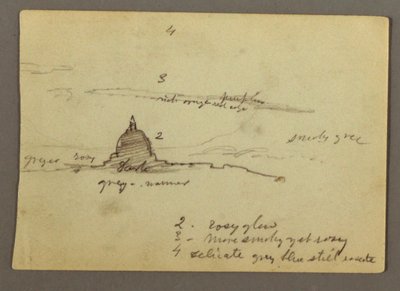 4
3
purplish
rich orange red edge
2
smoky grey
greyer rosy
dark
grey - warmer
2 - rosy glow
3 - more smoky yet rosy
4 delicate grey blue still